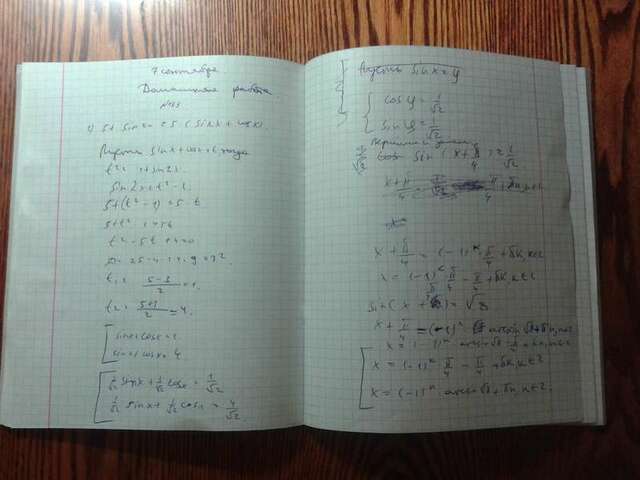 7 сентября
Домашняя работа
1) 5 + sin2x = 5 (sinx + cosx)
Пусть sinx + cosx = t тогда
t² = 1 + sin2x
sin2x = t² - 1
5 + (t² - 1) = 5 · t
5 + t² - 1 = 5t
t² - 5t + 4 = 0
D = 25 - 4 · 1 · 4 = 9 = 3²
t₁ = (5-3)/2 = 1
t₂ = (5+3)/2 = 4
sinx + cosx = 1
sinx + cosx = 4
1/√2 sinx + 1/√2 cosx = 1/√2
1/√2 sinx + 1/√2 cosx = 4/√2
Пусть sin x = y
cos y = 1/√2
sin y = 1/√2
sin (x + π/4) = 1/√2
x + π/4
x + π/4 = (-1)ᵏ · π/4 + πk, k∈Z
x = (-1)ᵏ · π/4 - π/4 + πk, k∈Z
sin (x + π/4) = √8
x + π/4 = (-1)ⁿ arcsin √8 + πn, n∈Z
x = (-1)ᵏ π/4 - π/4 + πk, k∈Z
x = (-1)ⁿ · arcsin √8 + πn, n∈Z